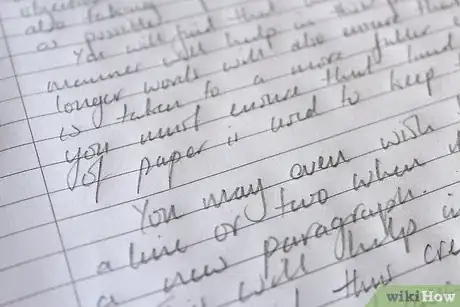 also taking
as possible
You will find that in
manner will help in this
longer words will also ensure there
is taken to a more fuller
you must ensure that lined
of paper is used to keep
You may even wish
a line or two when
a new paragraph.
will help in
this cre
wikiHow